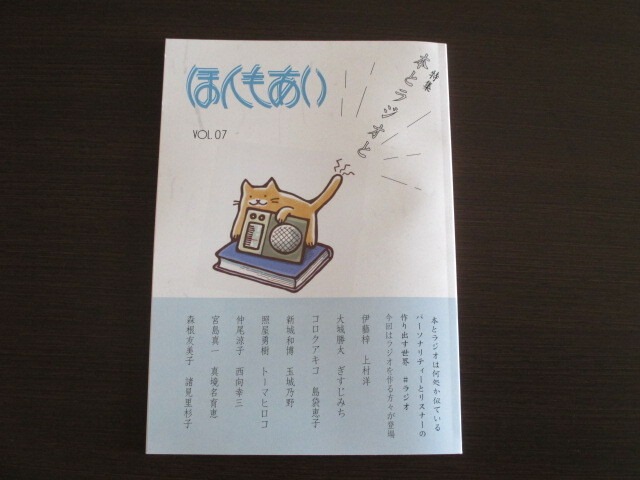 ほんもあい
VOL 07
特集
本とラジオと
本とラジオは何処か似ている
パーソナリティーとリスナーの
作り出す世界 #ラジオ
今回はラジオを作る方々が登場
伊藤梓 上村洋
大城勝太 ぎすじみち
コロクアキコ 島袋恵子
新城和博 玉城乃野
照屋勇樹 トーマヒロコ
仲尾涼子 西向幸三
宮島真一 真境名育恵
森根友美子 諸見里杉子